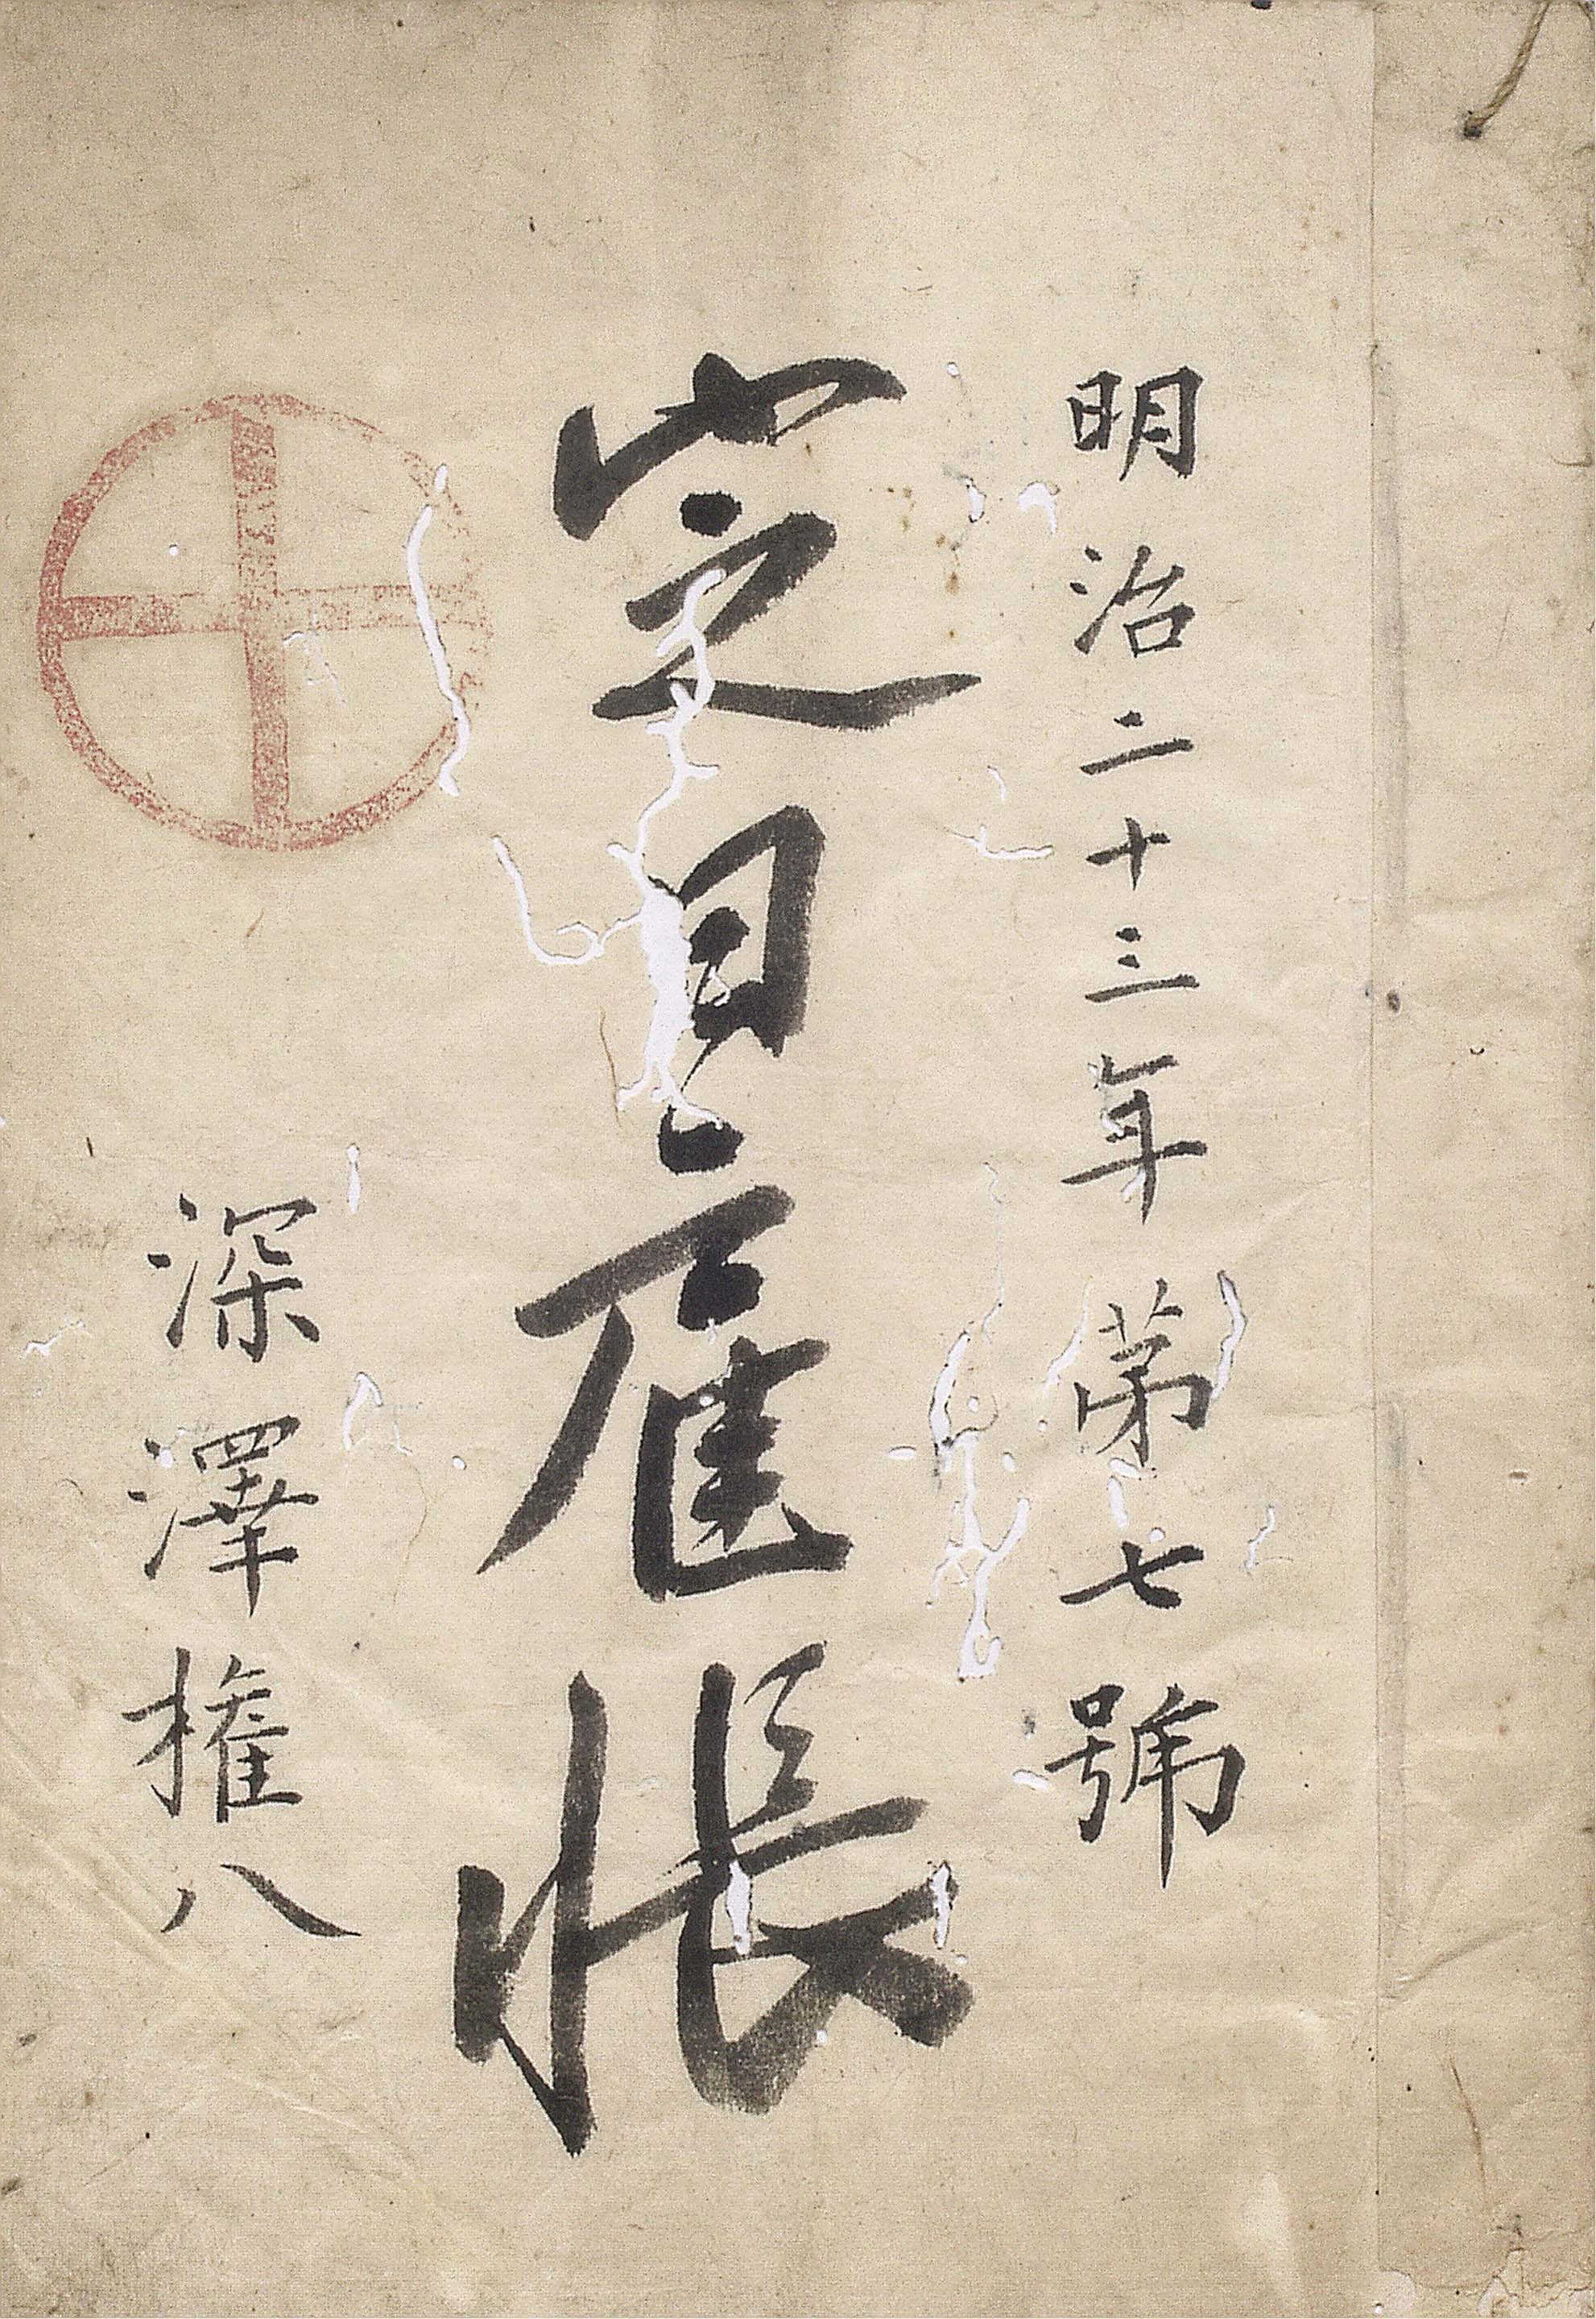 明治二十三年 第七號
定日雇帳
深澤権八